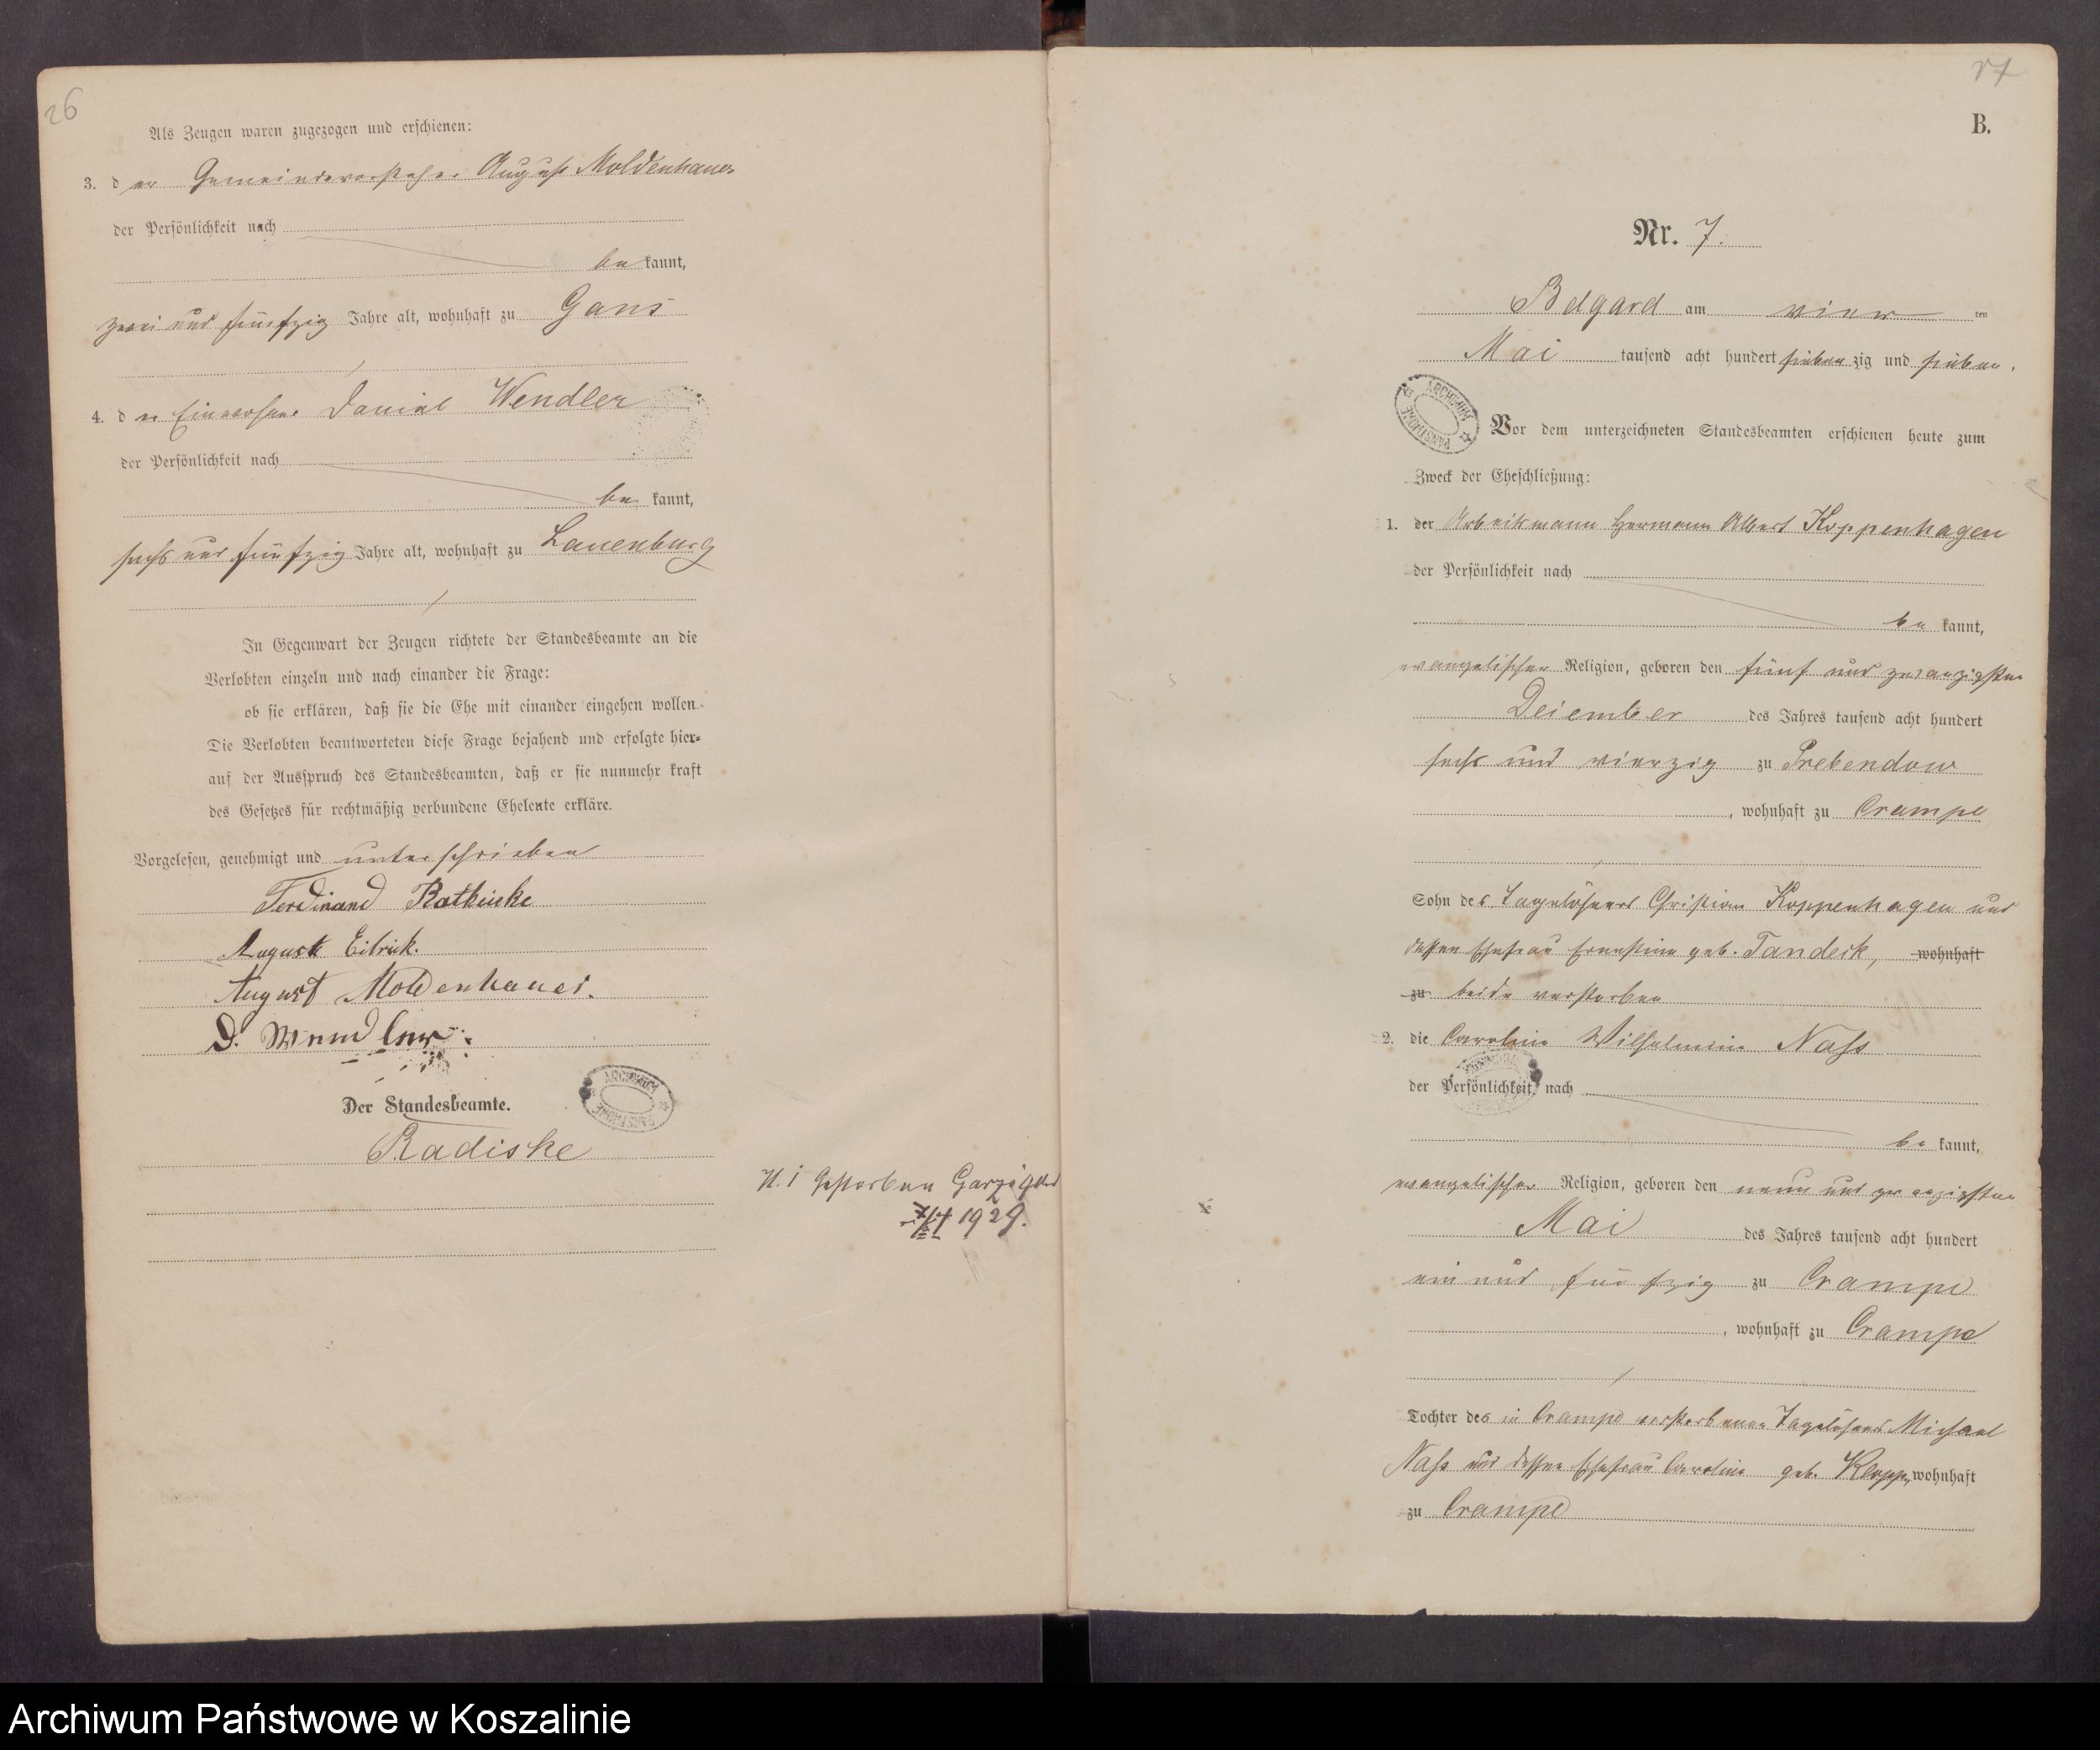 26
Als Zeugen waren zugezogen und erschienen:
3. der Gemeindevorsteher August Moldenhauer
der Persönlichkeit nach
be kannt,
zwei und fünfzig Jahre alt, wohnhaft zu Gans
4. der Einwohner Daniel Wendler
der Persönlichkeit nach
be kannt,
sechs und fünfzig Jahre alt, wohnhaft zu Lauenburg
In Gegenwart der Zeugen richtete der Standesbeamte an die
Verlobten einzeln und nach einander die Frage:
ob sie erklären, daß sie die Ehe mit einander eingehen wollen.
Die Verlobten beantworteten diese Frage bejahend und erfolgte hier-
auf der Ausspruch des Standesbeamten, daß er sie nunmehr kraft
des Gesetzes für rechtmäßig verbundene Eheleute erkläre.
Vorgelesen, genehmigt und unterschrieben
Ferdinand
August
August Moldenhauer.
D. Wendler
ARCHIWUM PAŃSTWOWE
Der Standesbeamte.
Radiske
N. 1 Gestorben Garzigar
1929.
B.
Nr. 7.
Belgard am vier ten
Mai tausend acht hundert sieben zig und sieben.
ARCHIWUM PAŃSTWOWE
Vor dem unterzeichneten Standesbeamten erschienen heute zum
Zweck der Eheschließung:
1. der Arbeitsmann Hermann Albert Koppenhagen
der Persönlichkeit nach
be kannt,
evangelischer Religion, geboren den fünf und zwanzigsten
Dezember des Jahres tausend acht hundert
sechs und vierzig zu Prebendow
, wohnhaft zu Crampe
Sohn des Tagelöhners Christian Koppenhagen und
dessen Ehefrau Ernestine geb. Tandeck, wohnhaft
zu beide verstorben
2. die Caroline Wilhelmine Nass
der Persönlichkeit nach
be kannt,
evangelischer Religion, geboren den neun und zwanzigsten
Mai des Jahres tausend acht hundert
ein und fünfzig zu Crampe
, wohnhaft zu Crampe
Tochter des in Crampe verstorbenen Tagelöhners Michael
Nass und dessen Ehefrau Caroline geb. wohnhaft
zu Crampe
Archiwum Państwowe w Koszalinie